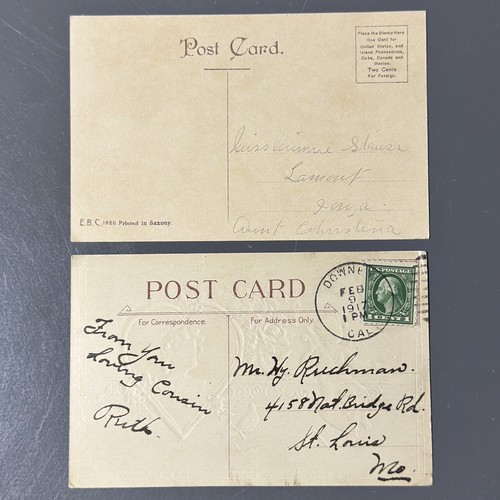 Post Card.
Place the Stamp Here
One Cent for
United States, and
Island Possessions,
Cuba, Canada and
Mexico,
Two Cents
For Foreign.
Struss
Lamont
Iowa
Aunt Christena
E.B.C. Printed in Saxony.
POST CARD
For Correspondence.
For Address Only.
DOWNEY
FEB
9
1 PM
CAL
U.S. POSTAGE
From You
Loving Cousin
Ruth.
Mr. Hy. Ruchman.
4158 Nat. Bridge Rd.
St. Louis
Mo.